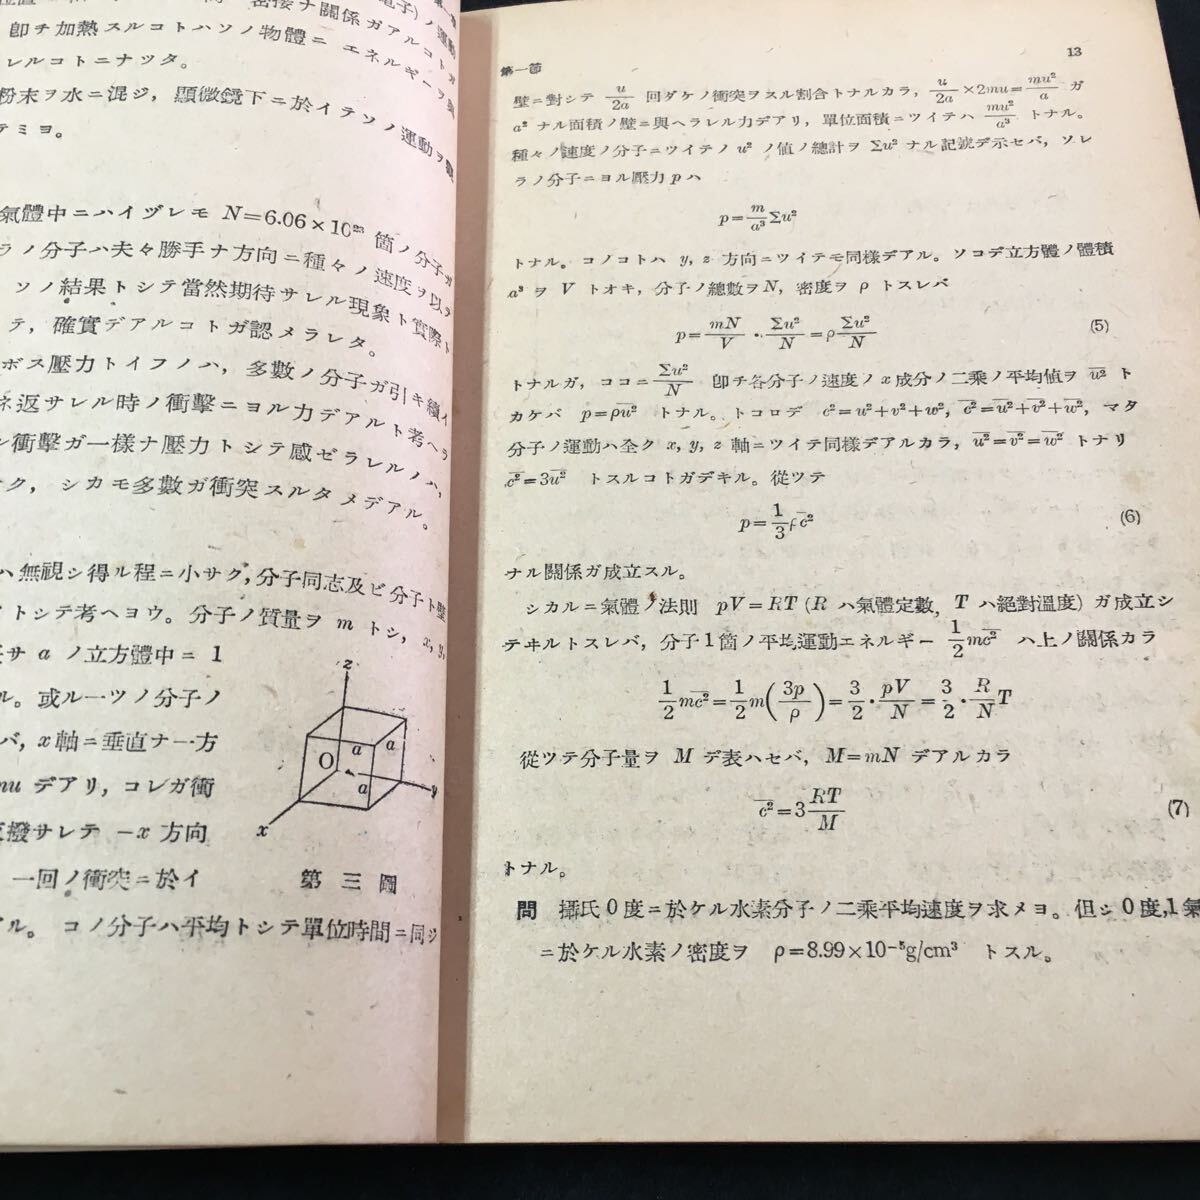 卽チ加熱スルコトハソノ物體ニ エネルギーヲ
レルコトニナツタ。
粉末ヲ水ニ混ジ，顯微鏡下ニ於イテソノ運動ヲ
テミヨ。
氣體中ニハイヅレモ N=6.06×10²³ 箇ノ分子ガ
ラノ分子ハ夫々勝手ナ方向ニ種々ノ速度ヲ以ヲ
ソノ結果トシテ當然期待サレル現象ト實際ト
テ，確實デアルコトガ認メラレタ。
ボス壓力トイフノハ，多數ノ分子ガ引キ續イ
ネ返サレル時ノ衝擊ニヨル力デアルト考ヘラ
衝擊ガ一樣ナ壓力トシテ感ゼラレルノハ，
ク，シカモ多數ガ衝突スルタメデアル。
ハ無視シ得ル程ニ小サク，分子同志及ビ分子ト壁
トシテ考ヘヨウ。分子ノ質量ヲ m トシ，x, y,
サ a ノ立方體中ニ 1
ル。或ル一ツノ分子ノ
バ，x 軸ニ垂直ナ一方
mu デアリ，コレガ衝
撥サレテ −x 方向
一回ノ衝突ニ於イ
ル。 コノ分子ハ平均トシテ單位時間ニ同ジ
z
a
a
O
a
y
x
第三圖
第一節
13
壁ニ對シテ u/2a 回ダケノ衝突ヲスル割合トナルカラ，u/2a×2mu=mu²/a ガ
a² ナル面積ノ壁ニ與ヘラレル力デアリ，單位面積ニツイテハ mu²/a³ トナル。
種々ノ速度ノ分子ニツイテノ u² ノ値ノ總計ヲ Σu² ナル記號デ示セバ，ソレ
ラノ分子ニヨル壓力 p ハ
p=m/a³Σu²
トナル。コノコトハ y, z 方向ニツイテモ同樣デアル。ソコデ立方體ノ體積
a³ ヲ V トオキ，分子ノ總數ヲ N，密度ヲ ρ トスレバ
p=mN/V·Σu²/N=ρΣu²/N (5)
トナルガ，ココニ Σu²/N 卽チ各分子ノ速度ノ x 成分ノ二乘ノ平均値ヲ u̅²̅ ト
カケバ p=ρu̅²̅ トナル。トコロデ c²=u²+v²+w²，c̅²̅=u̅²̅+v̅²̅+w̅²̅，マタ
分子ノ運動ハ全ク x, y, z 軸ニツイテ同樣デアルカラ，u̅²̅=v̅²̅=w̅²̅ トナリ
c̅²̅=3u̅²̅ トスルコトガデキル。從ツテ
p=1/3ρc̅²̅ (6)
ナル關係ガ成立スル。
シカルニ氣體ノ法則 pV=RT (R ハ氣體定數，T ハ絕對溫度) ガ成立シ
テヰルトスレバ，分子1箇ノ平均運動エネルギー 1/2mc̅²̅ ハ上ノ關係カラ
1/2mc̅²̅=1/2m(3p/ρ)=3/2·pV/N=3/2·R/NT
從ツテ分子量ヲ M デ表ハセバ，M=mN デアルカラ
c̅²̅=3RT/M (7)
トナル。
問 攝氏0度ニ於ケル水素分子ノ二乘平均速度ヲ求メヨ。但シ0度，1氣
ニ於ケル水素ノ密度ヲ ρ=8.99×10⁻⁵g/cm³ トスル。